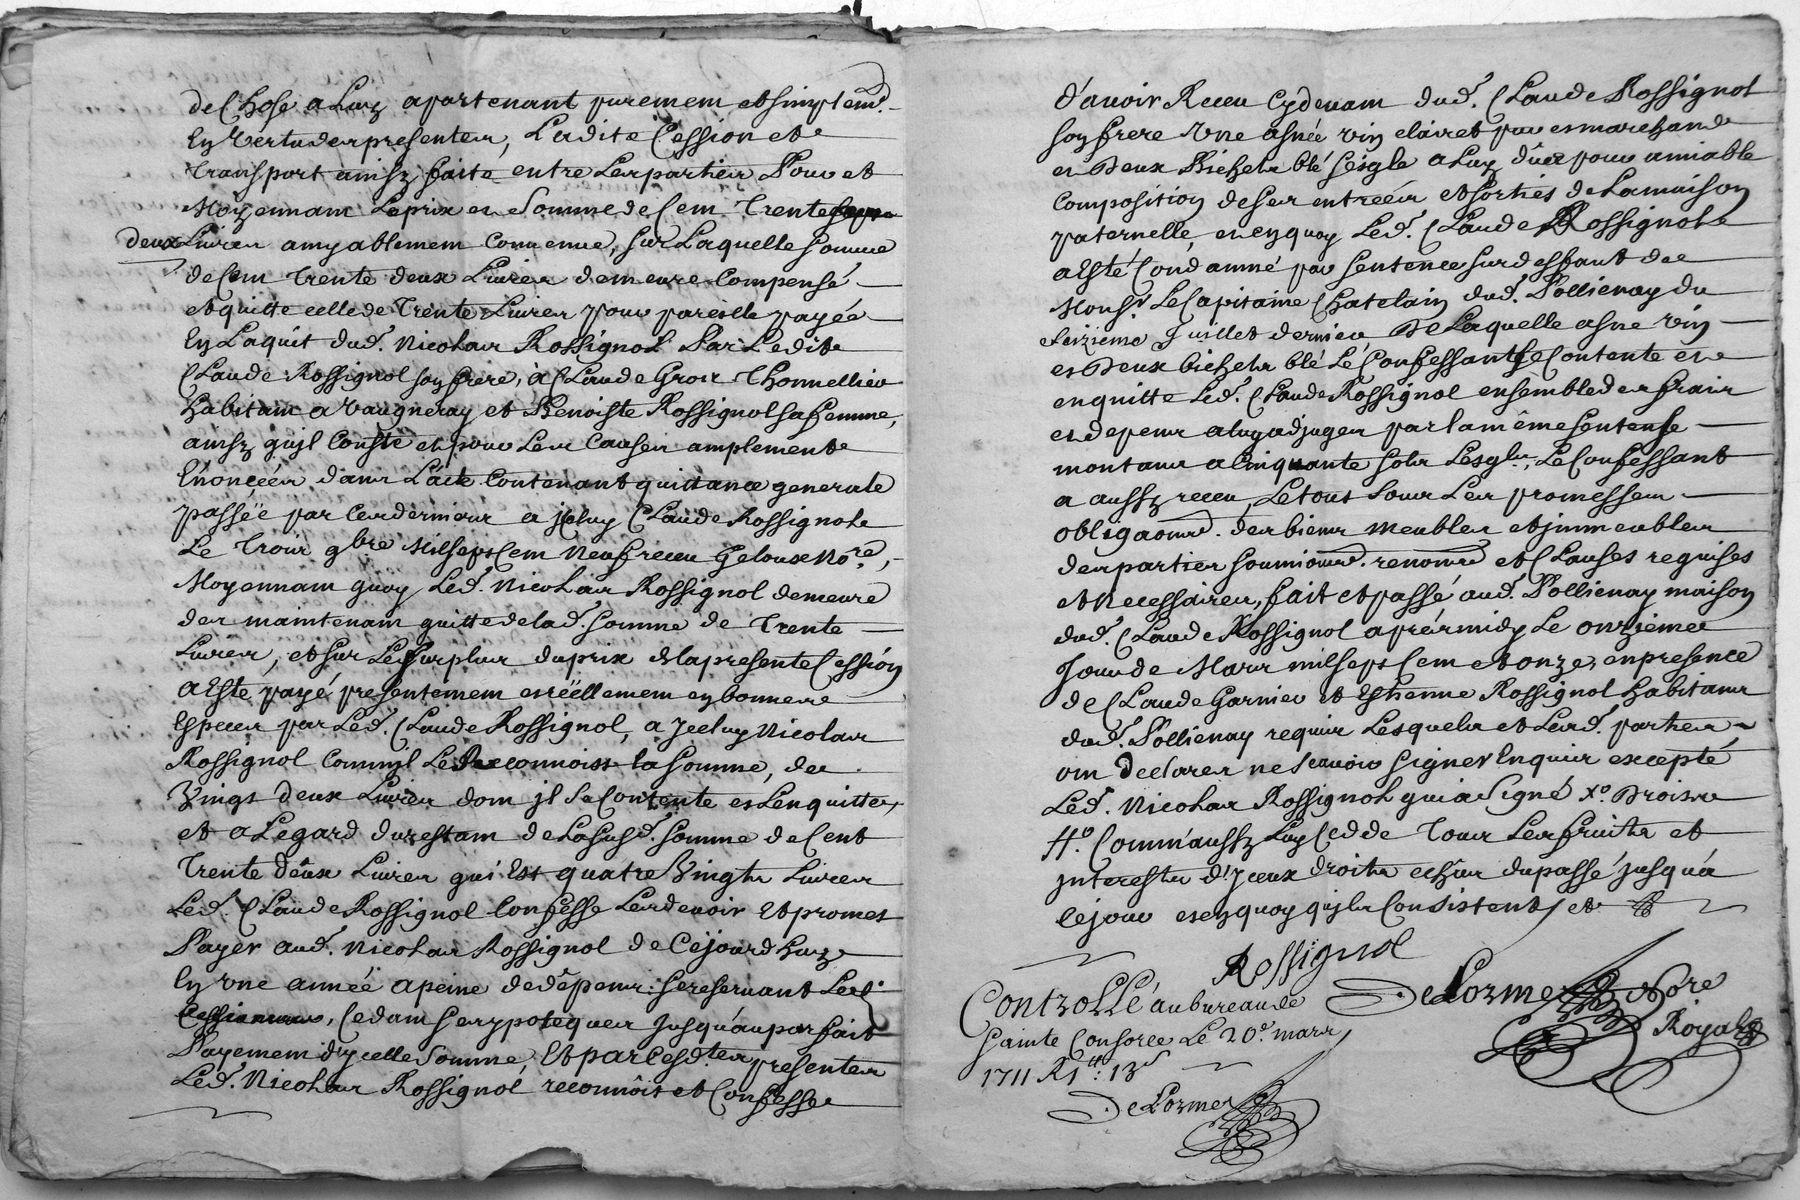 de Chose a Luy apartenant purement et simplem.t
En Vertu des presentes, Ladite Cession et
Transport ainsy faite entre Les parties Pour et
Moyennant Le prix et Somme de Cent Trente
deux Livres amyablement Convenue, sur Laquelle somme
de Cent Trente deux Livres demeure Compensé
et quitte celle de Trente Livres pour pareille payée
En L'aquit dud. Nicolas Rossignol Par Ledit
Claude Rossignol son frere, à Claude Gros Thonnellier
habitant a Vaugneray et Benoiste Rossignol sa femme,
ainsy qu'jl Conste et pour Les Causes amplement
Enoncéés dans L'acte Contenant quittance generale
passée par Ces derniers a jceluy Claude Rossignol
Le Trois 9bre Mil sept Cent Neuf receu Geloux No.re,
Moyennant quoy Led. Nicolas Rossignol demeure
des maintenant quitte de lad. somme de Trente
Livres, et sur Le surplus du prix de la presente Cession
a Esté payé presentement et réellement en bonnes
Especes par Led. Claude Rossignol, a Jceluy Nicolas
Rossignol Comm'jl Le Reconnoist la somme, de
Vingt deux Livres dont jl Se Contente et L'en quitte,
et a L'egard du restant de La susd. somme de Cent
Trente deux Livres qui Est quatre Vingts Livres
Led. Claude Rossignol Confesse Les devoir Et promet
Payer aud. Nicolas Rossignol de Cejourd'huy
En Vne année a peine de depens: se reservant Led.
Cedant ses ypoteques Jusqu'au parfait
Payement d'ycelle Somme, Et par Cesd.tes presentes
Led. Nicolas Rossignol reconnoit et Confesse
d'avoir Receu Cydevant dud. Claude Rossignol
son frere Vne asnée vin clairet pur et marchand
et Deux Bichets blé seigle a Luy dües pour amiable
Composition de ses entréés et sorties de La maison
paternelle, et en quoy Led. Claude Rossignol
a Esté Condamné par sentence sur deffaut de
Mons.r Le Capitaine Chatelain dud. Pollienay du
seizieme Juillet dernier, De Laquelle asné vin
et Deux bichets blé Le Confessant se Contente et
en quitte Led. Claude Rossignol ensemble des frais
et depens a luy adjugés par la même sentense
montans a Cinquante sols Lesqls, Le Confessant
a aussy receu, Le tout sous Les promesses
obligaons. des biens meubles et jmmeubles
des parties soumions. renons. et Clauses requises
et Necessaires, fait et passé aud. Pollienay maison
dud. Claude Rossignol aprés midy Le onzieme
Jour de Mars mil sept Cent et onze, en presence
de Claude Garnier et Estienne Rossignol habitans
dud. Pollienay requis Lesquels et Lesd. parties
ont declarer ne scavoir signer Enquis excepté
Led. Nicolas Rossignol qui a Signé
Comm'aussy Luy Cedde Tous Les fruits et
jnterests d'Jceux droits echus du passé jusqu'a
Cejour et en quoy qu'jls Consistent, et
Rossignol
DeLorme Nore
Royal
Controllé au bureau de
Sainte Consorce Le 20.e mars
1711 R 1tt: 13s
DeLorme